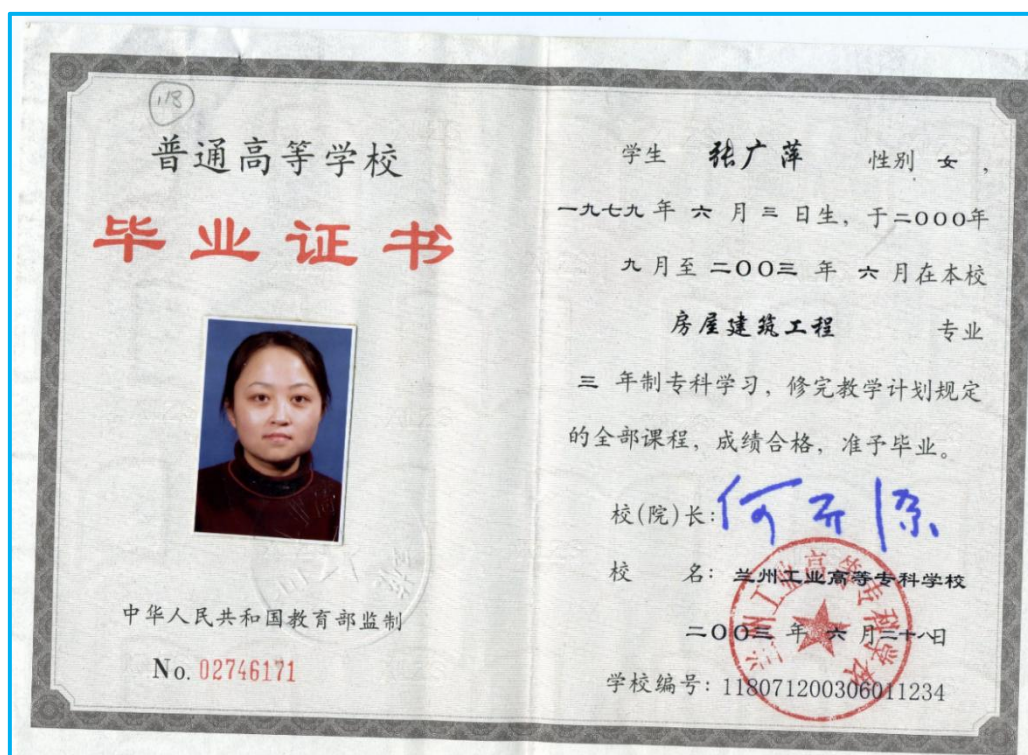 118
普通高等学校
毕业证书
中华人民共和国教育部监制
No. 02746171
学生 张广萍 性别 女，
一九七九 年 六 月 三 日生，于二〇〇〇年
九 月至 二〇〇三 年 六 月在本校
房屋建筑工程 专业
三 年制专科学习，修完教学计划规定
的全部课程，成绩合格，准予毕业。
校(院)长：
校 名：兰州工业高等专科学校
二〇〇三 年 六 月二十八日
学校编号：118071200306011234
兰州工业高等专科学校